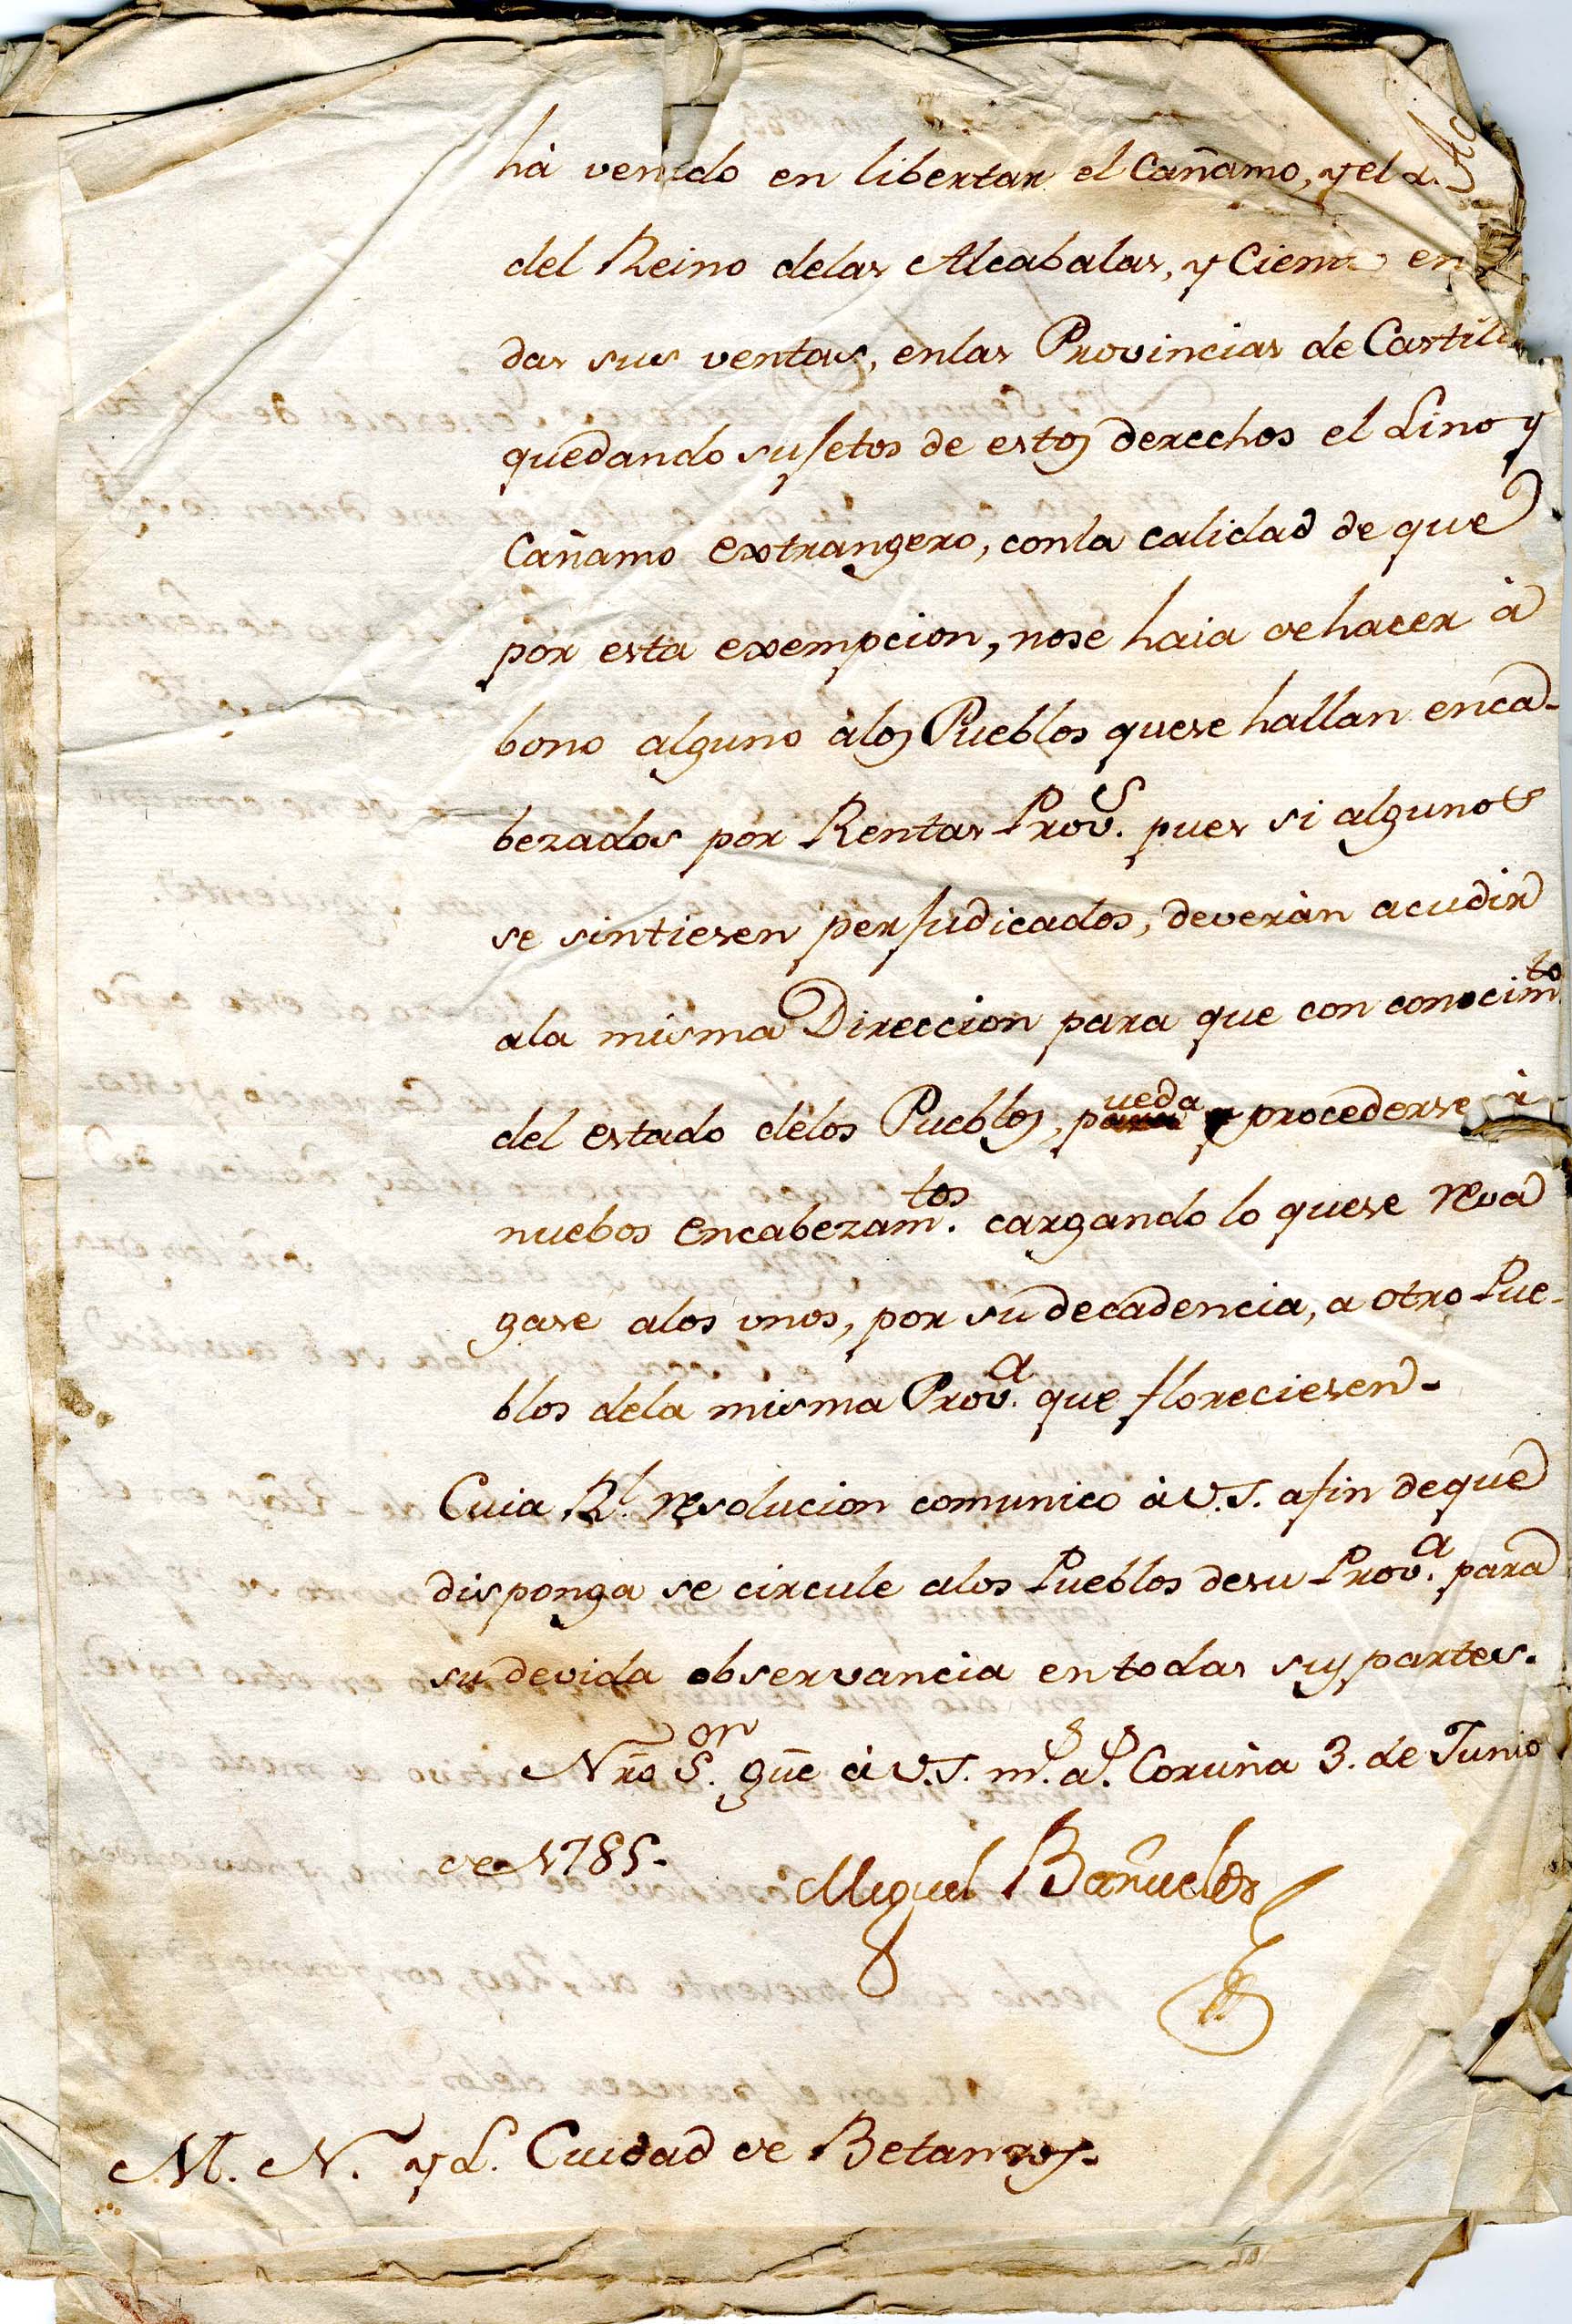 hà venido en libertar el Cañamo, y el
del Reino delas Alcabalas, y Cientos en
das sus ventas, enlas Provincias de Castill
quedando sujetos de estos derechos el Lino y
Cañamo extrangero, conla calidad de que
por esta exempcion, nose haia de hacer à
bono alguno àlos Pueblos quese hallan enca-
bezados por Rentas Prov.s pues si algunos
se sintiesen perjudicados, deveràn acudir
ala misma Direccion para que con conocim.to
del estado delos Pueblos, pueda procederse à
nuebos encabezam.tos cargando lo quese reva
gase alos unos, por su decadencia, a otro Pue-
blos dela misma Prov.a que floreciesen.
Cuia R.l resolucion comunico à V.S. afin deque
disponga se circule alos Pueblos desu Prov.a para
su devida observancia entodas sus partes.
Nrõ S.or gũe à V.S. m.s a.s Coruña 3. de Junio
de 1785.
Miguel Bañuelos
M. N. y L. Ciudad de Betanzos.